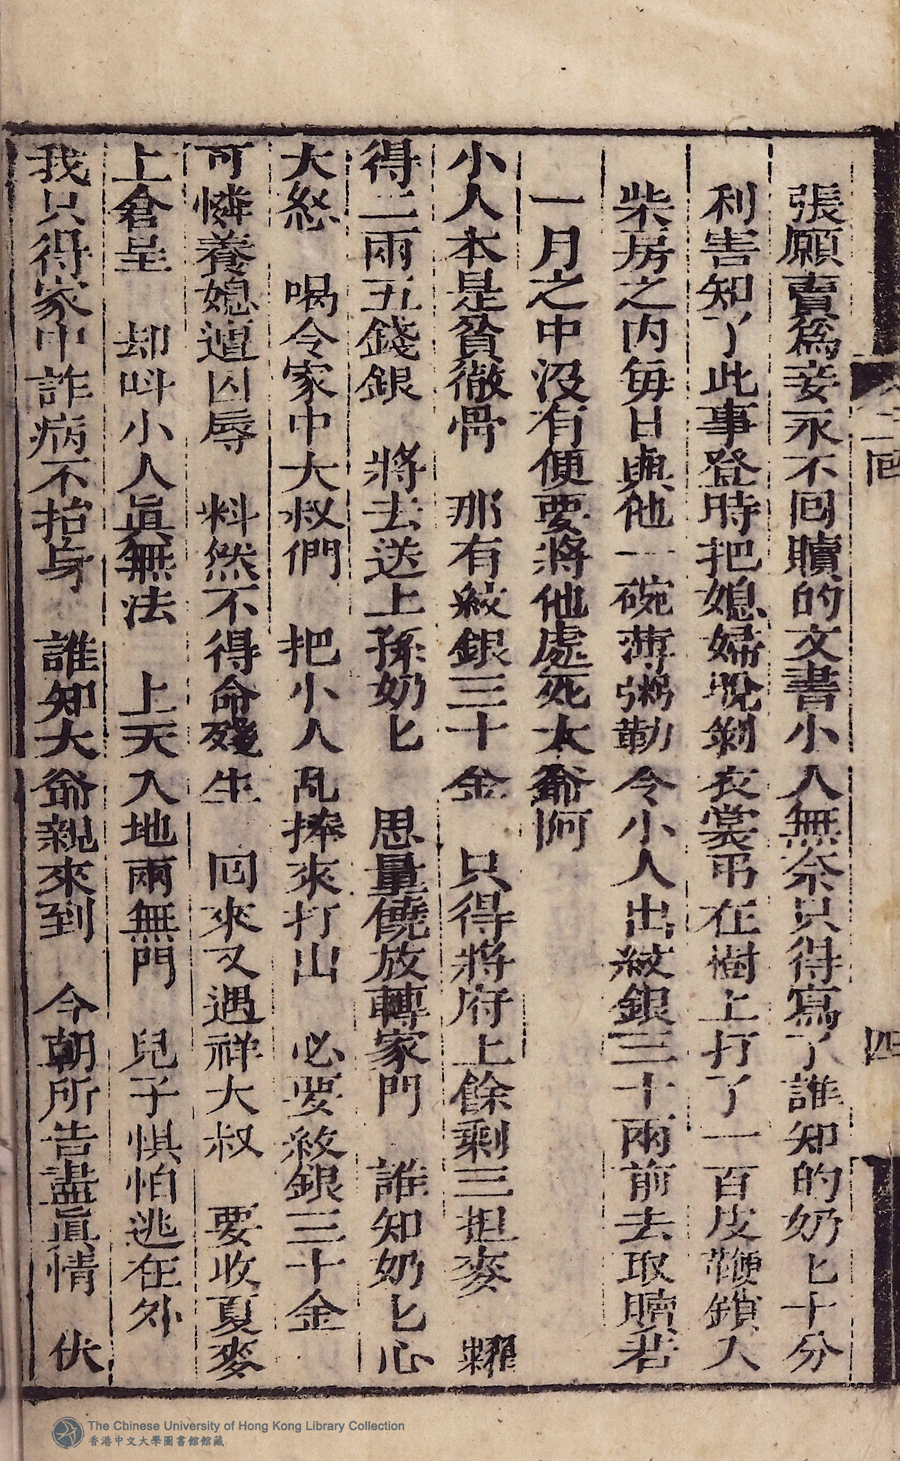 張願賣爲妾永不回贖的文書小人無奈只得寫了誰知的奶匕十分
利害知了此事登時把媳婦脫剝衣裳吊在樹上打了一百皮鞭鎖入
柴房之内每日與他一碗薄粥勒令小人出紋銀三十兩前去取贖若
一月之中没有便要將他處死太爺阿
小人本是貧徹骨 那有紋銀三十金 只得將府上餘剩三担麥 糶
得二兩五錢銀 將去送上孫奶匕 思量僥放轉家門 誰知奶匕心
大怒 喝令家中大叔們 把小人乱捧來打出 必要紋銀三十金
可憐養媳遭囚辱 料然不得命殘生 囘來又遇祥大叔 要收夏麥
上倉呈 却呌小人眞無法 上天入地兩無門 兒子惧怕逃在外
我只得家中詐病不抬身 誰知大爺親來到 今朝所告盡眞情 伏
二囘
四
The Chinese University of Hong Kong Library Collection
香港中文大學圖書館館藏